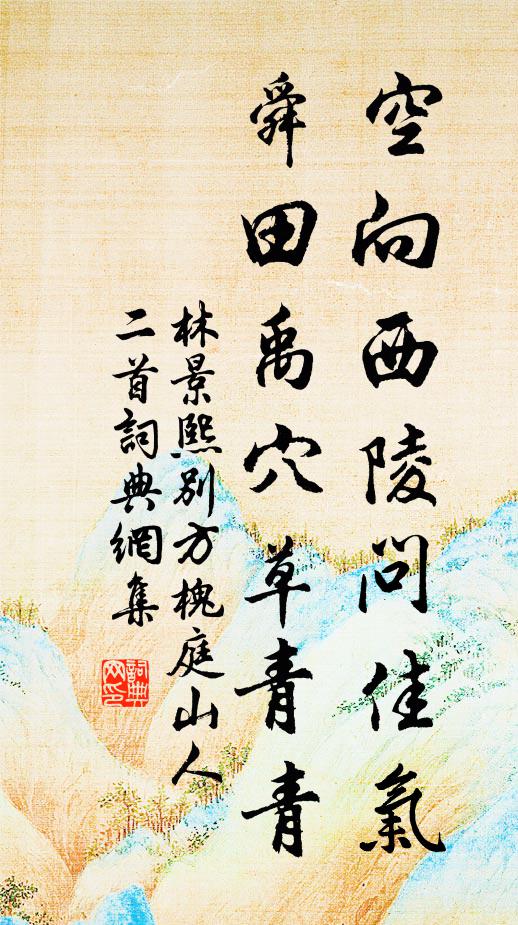 空向西陵問佳氣
舜田禹穴草青青
林景熙別方槐庭山人
二首詞典網集
詞典网印